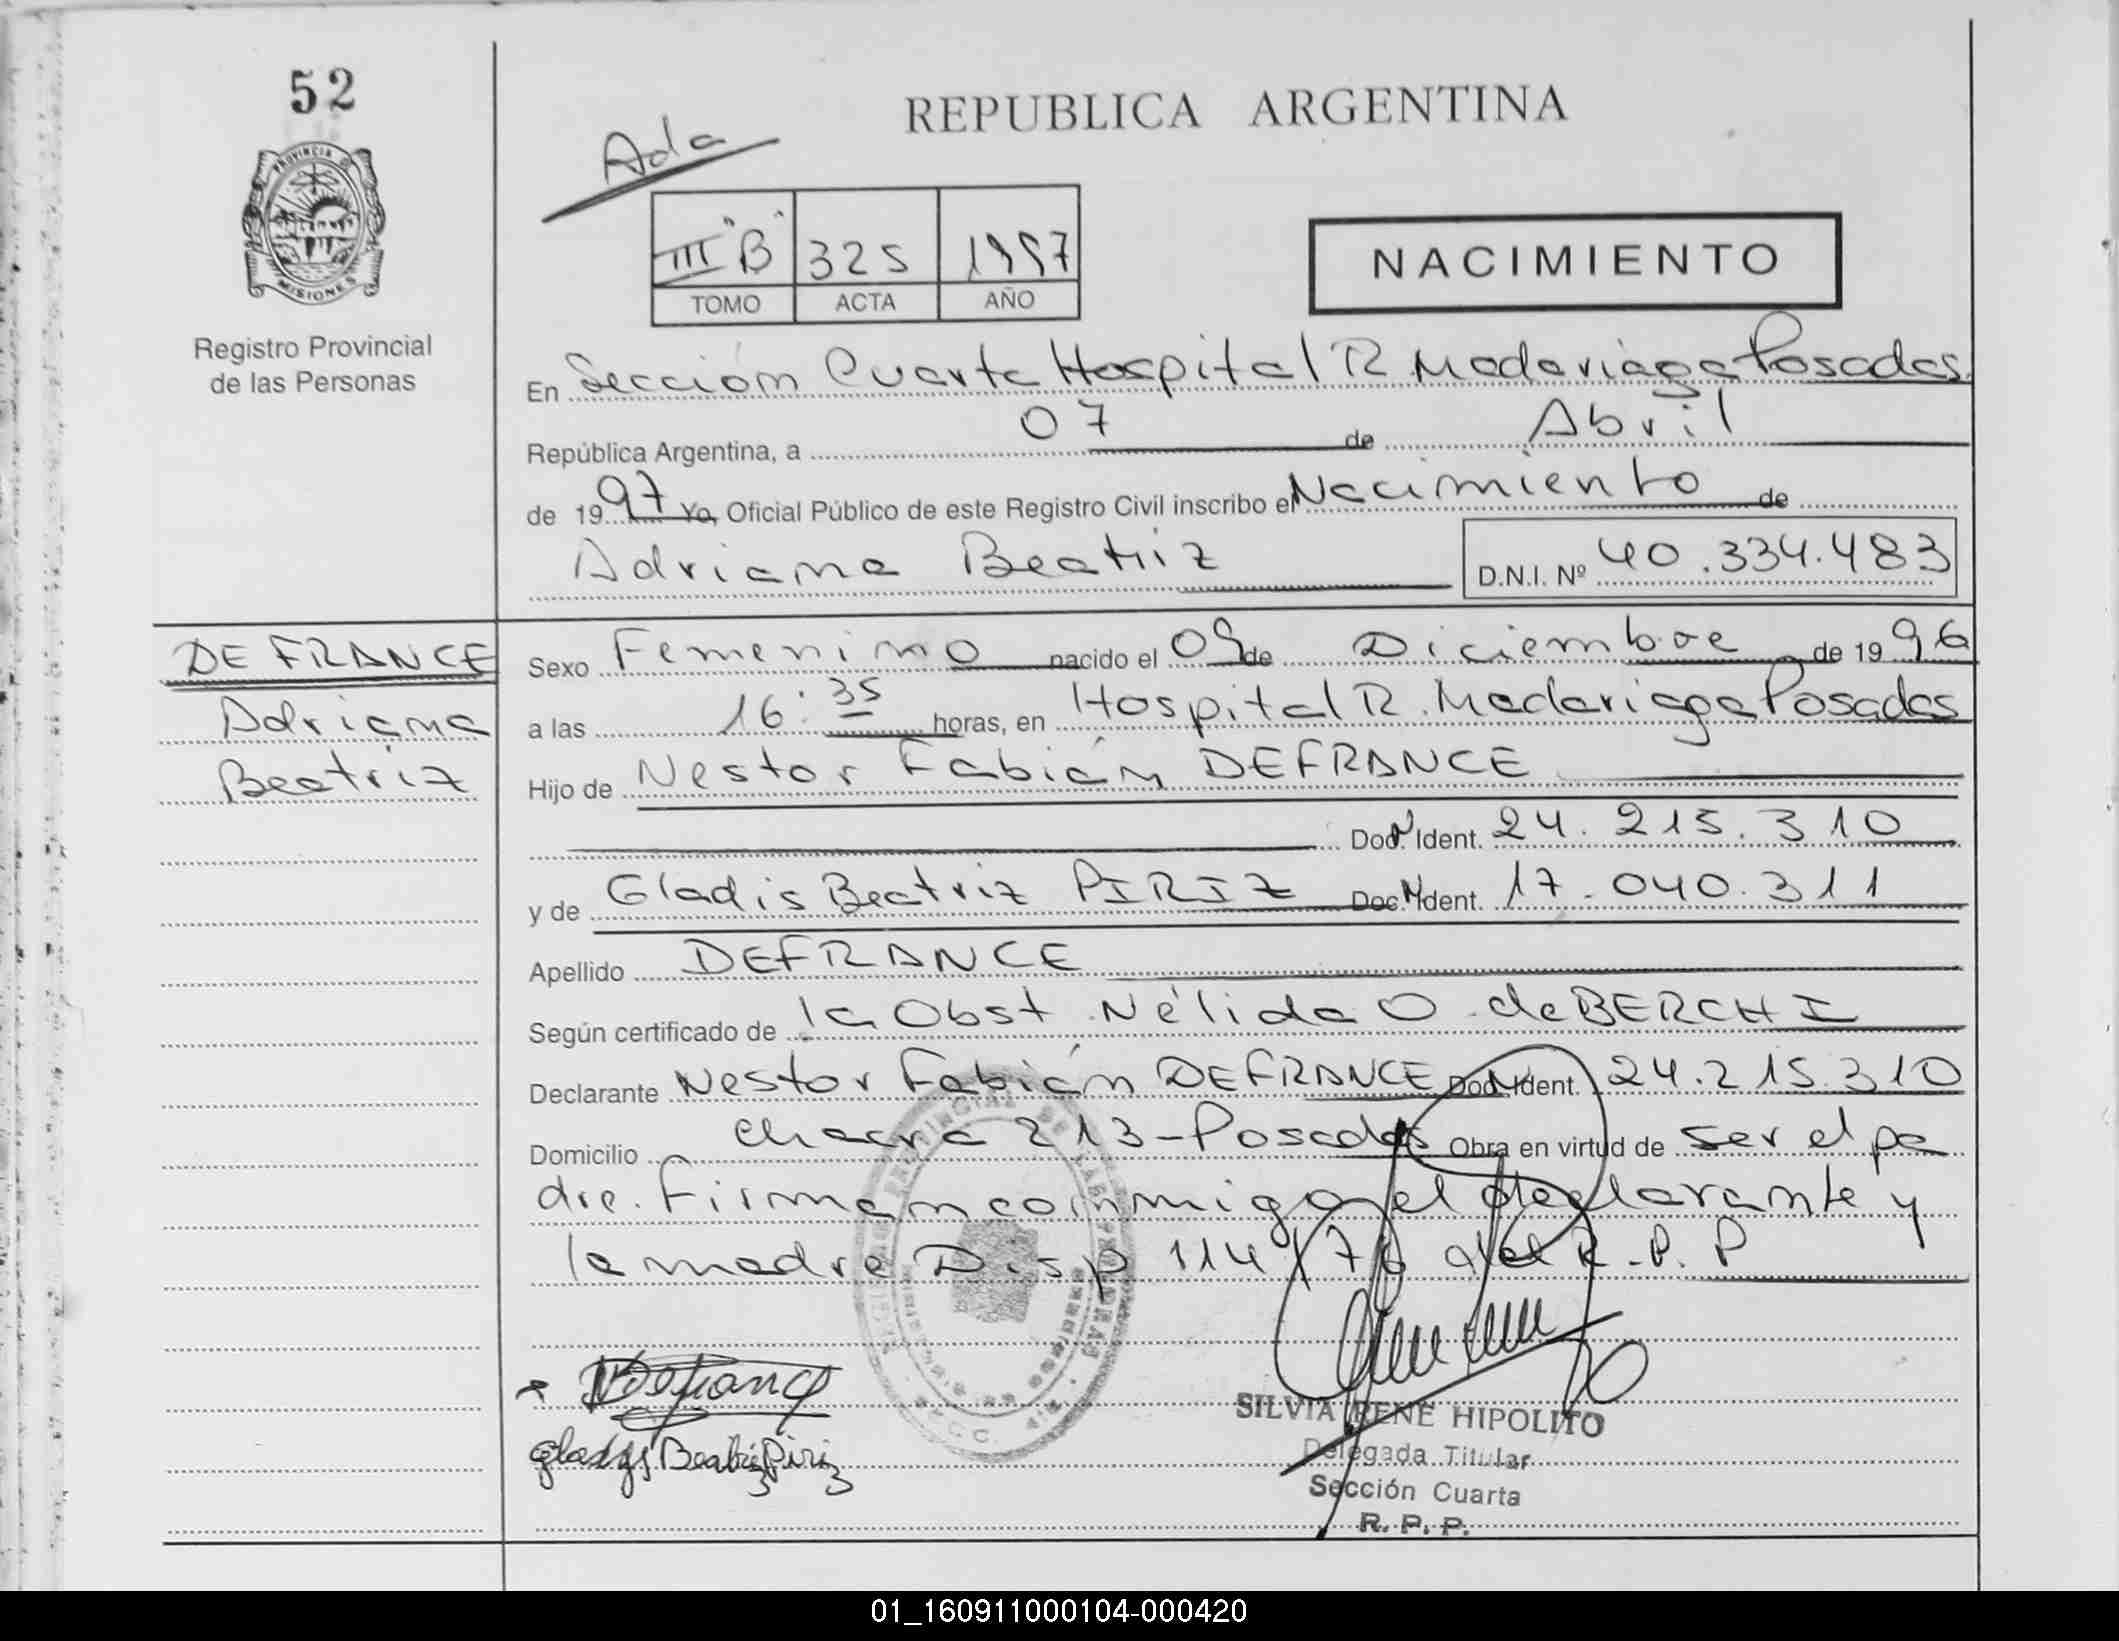 52
REPUBLICA ARGENTINA
Ada
PROVINCIA D
MISIONES
III "B" 325 1997
TOMO ACTA AÑO
NACIMIENTO
Registro Provincial
de las Personas
En Sección Cuarta Hospital R Madariaga Posadas
República Argentina, a 07 de Abril
de 1997 Yo, Oficial Público de este Registro Civil inscribo el Nacimiento de
Adriana Beatriz D.N.I. Nº 40.334.483
DEFRANCE
Adriana
Beatriz
Sexo Femenino nacido el 09 de Diciembre de 1996
a las 16:35 horas, en Hospital R. Madariaga Posadas
Hijo de Nestor Fabián DEFRANCE
Doc. N Ident. 24.215.310
y de Gladis Beatriz PIRIZ Doc. N Ident. 17.040.311
Apellido DEFRANCE
Según certificado de la Obst Nélida O. de BERCHI
Declarante Nestor Fabián DEFRANCE Doc. N Ident. 24.215.310
Domicilio Chacra 213-Posadas Obra en virtud de ser el pa
dre. Firman conmigo el declarante y
la madre Disp 114/76 del R.P.P
Gladys Beatriz Piriz
SILVIA RENE HIPOLITO
Delegada Titular
Sección Cuarta
R. P. P.
01_160911000104-000420